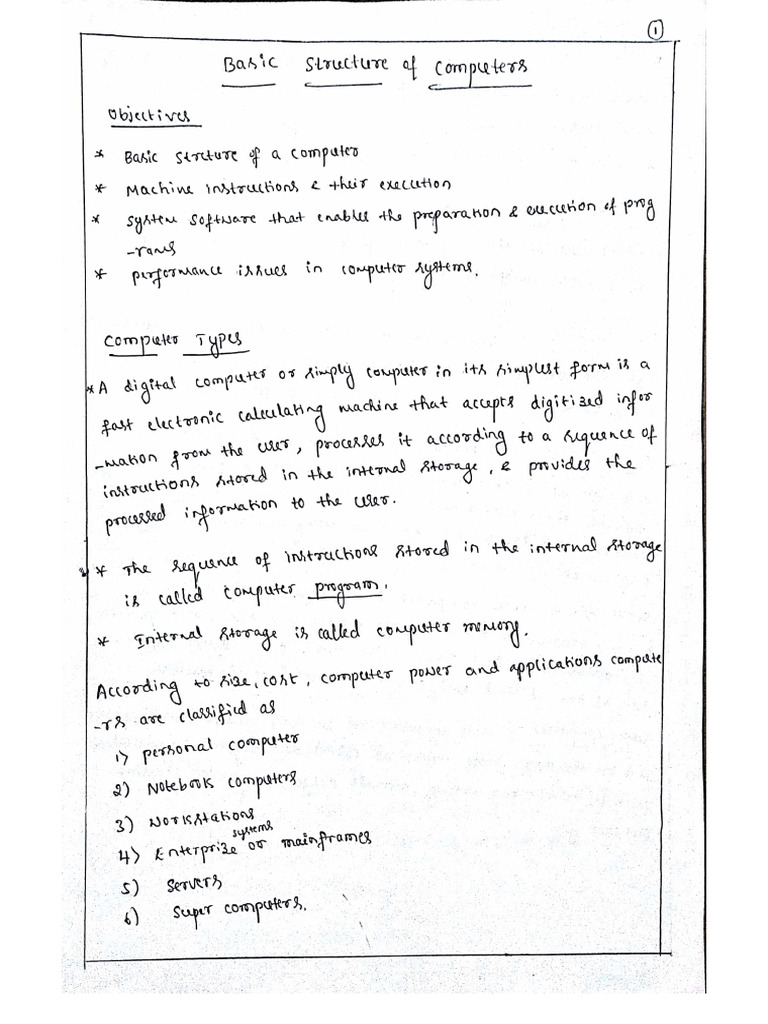 1
Basic Structure of Computers
Objectives
* Basic Strcture of a computer
* Machine instructions & their execution
* System Software that enables the preparation & execution of prog
-rams
* performance issues in computer systems.
Computer Types
* A digital computer or simply computer in its simplest form is a
fast electronic calculating machine that accepts digitized infor
-mation from the user, processes it according to a sequence of
instructions stored in the internal storage, & provides the
processed information to the user.
* The sequence of instructions stored in the internal storage
is called computer program.
* Internal storage is called computer memory.
According to size, cost, computer power and applications compute
-rs are classified as
1) personal computer
2) Notebook computers
3) Workstations
4) Enterprize systems or mainframes
5) Servers
6) Super computers.